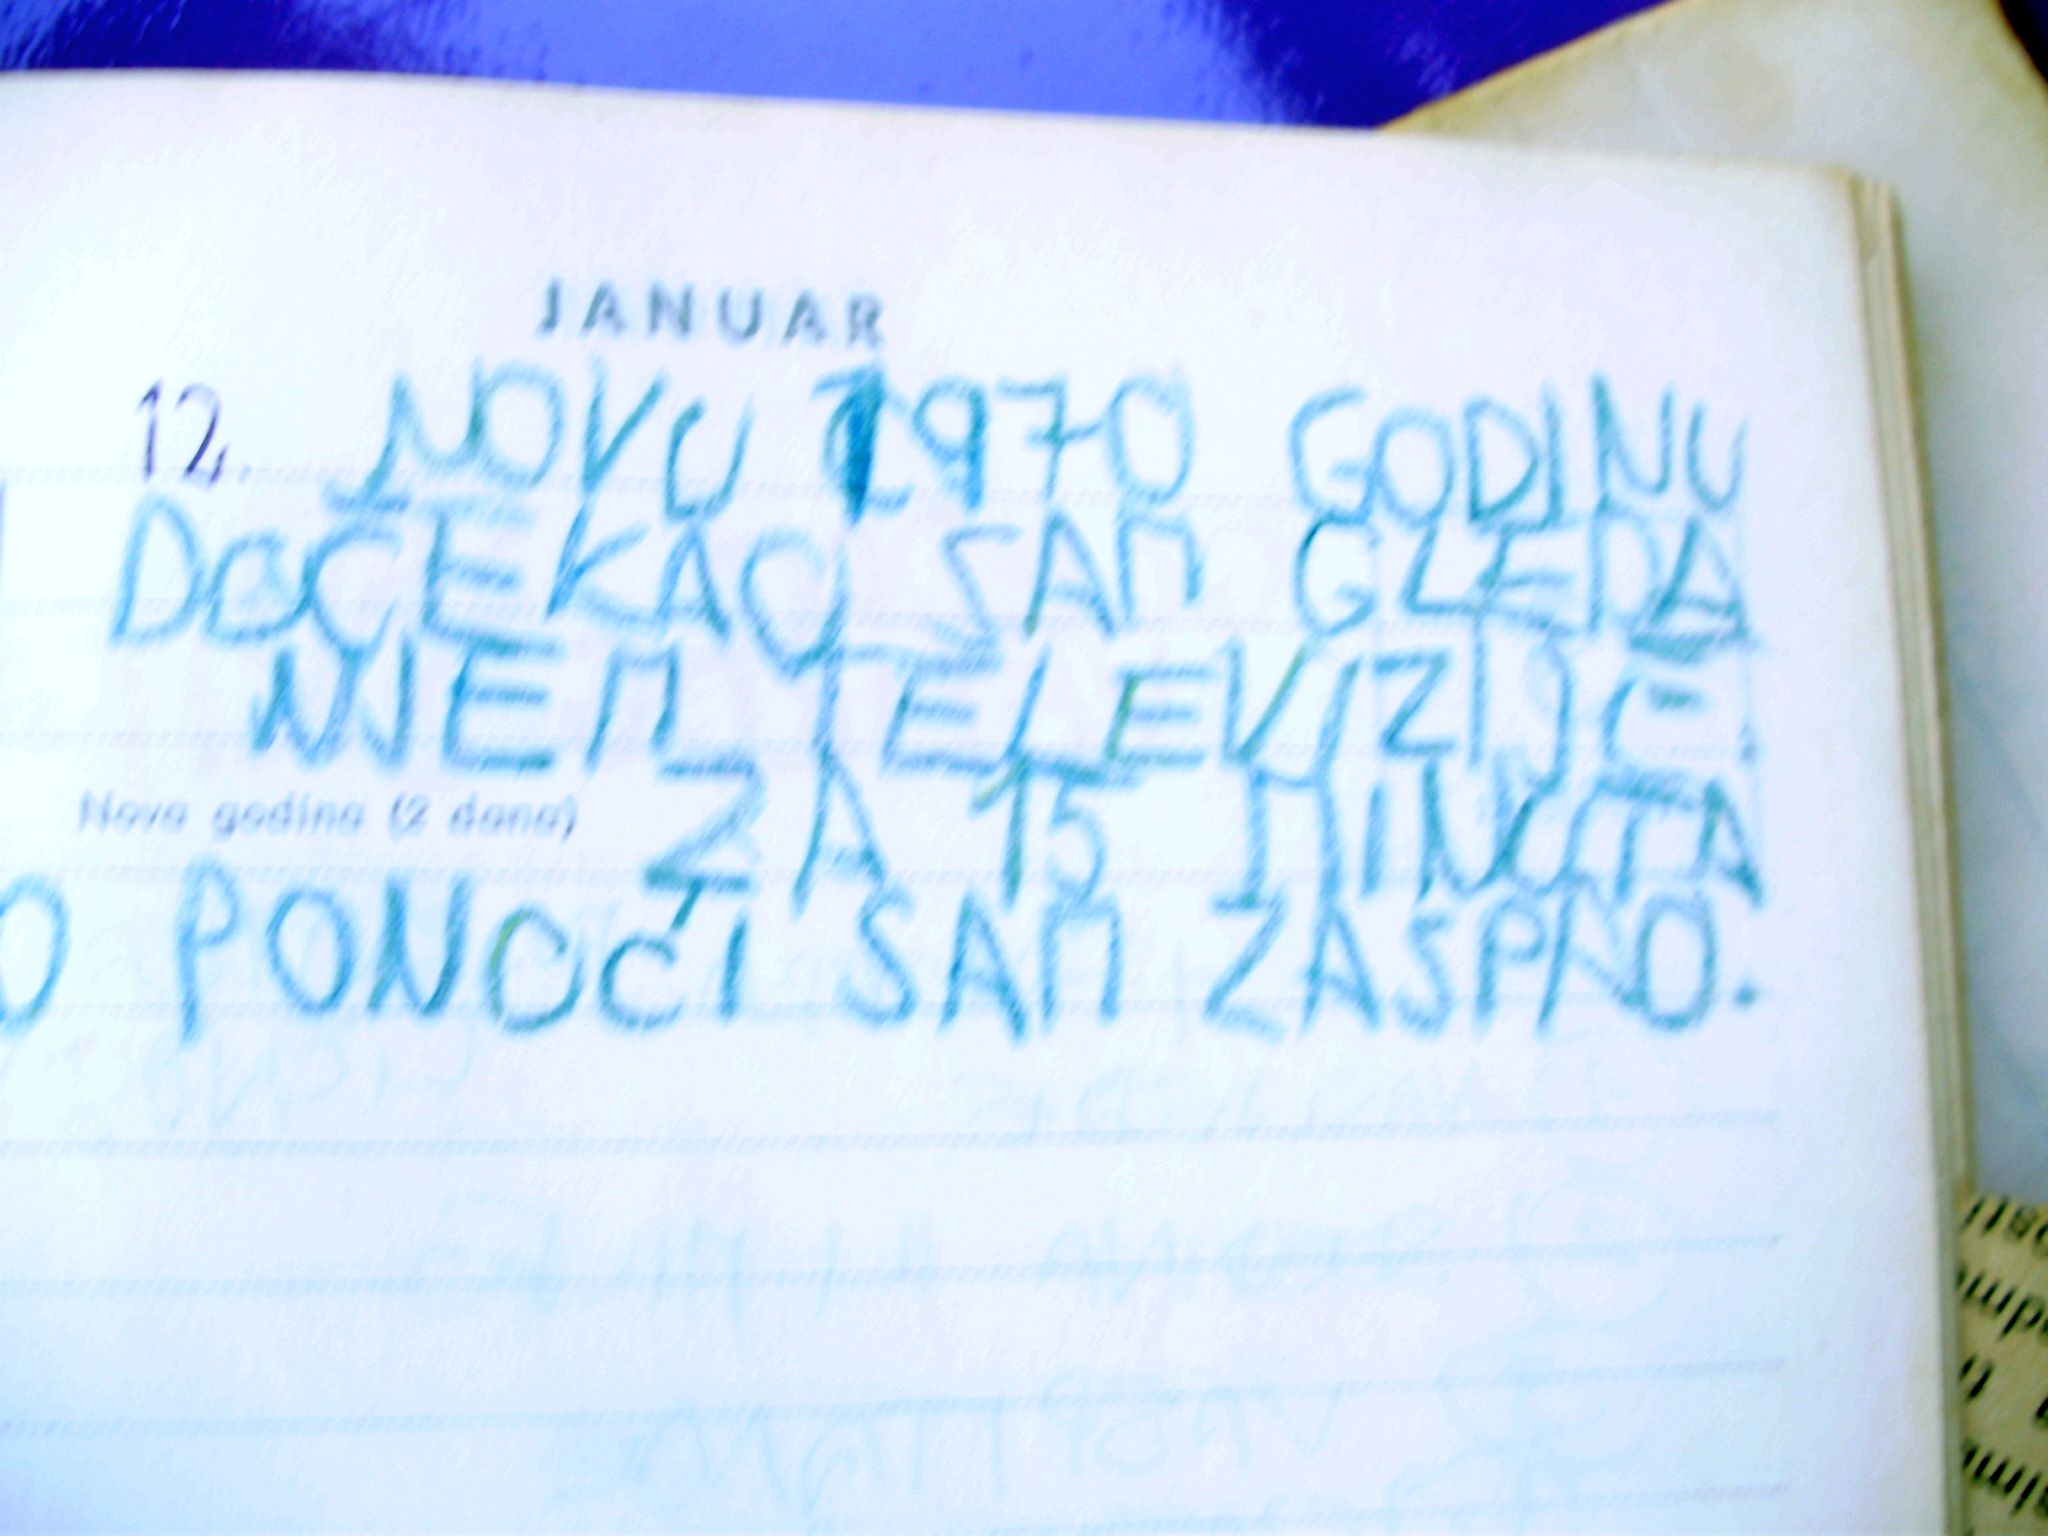 JANUAR
12. NOVU 1970 GODINU
DOČEKAO SAM GLEDA
NJEM TELEVIZIJE.
Nova godina (2 dana) ZA 15 MINUTA
O PONOĆI SAM ZASPAO.